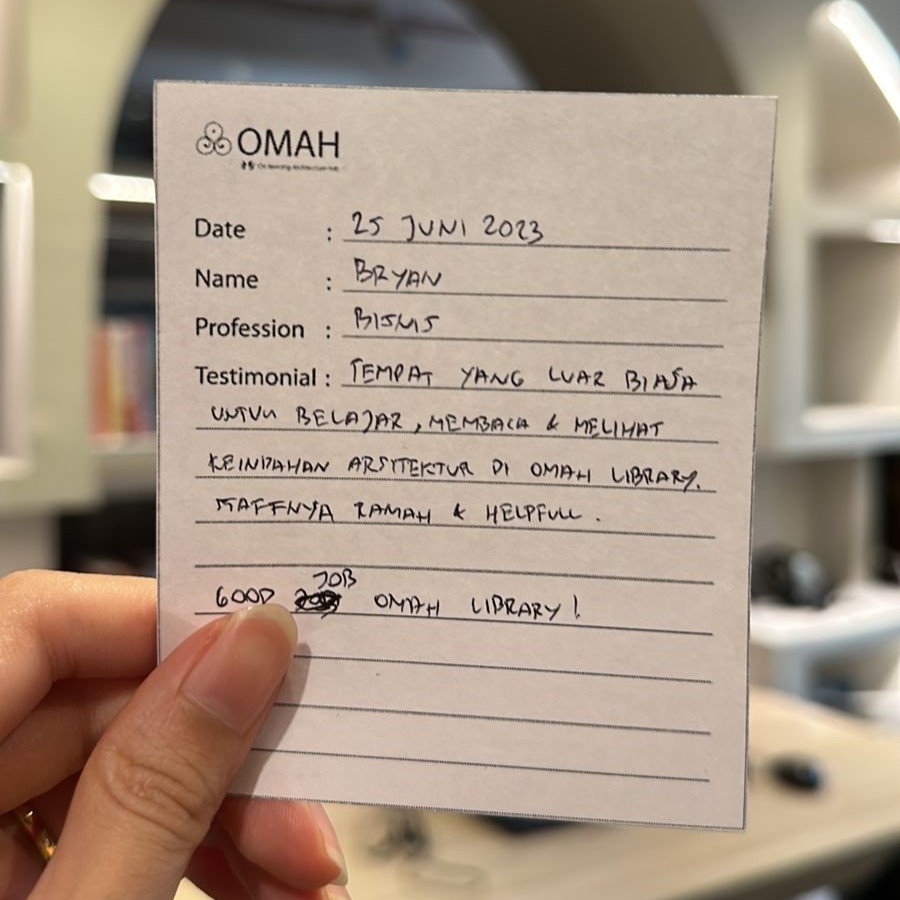 OMAH
Date : 25 JUNI 2023
Name : BRYAN
Profession : BISNIS
Testimonial : TEMPAT YANG LUAR BIASA
UNTUK BELAJAR, MEMBACA & MELIHAT
KEINDAHAN ARSITEKTUR DI OMAH LIBRARY.
STAFFNYA RAMAH & HELPFULL.
JOB
GOOD OMAH LIBRARY!